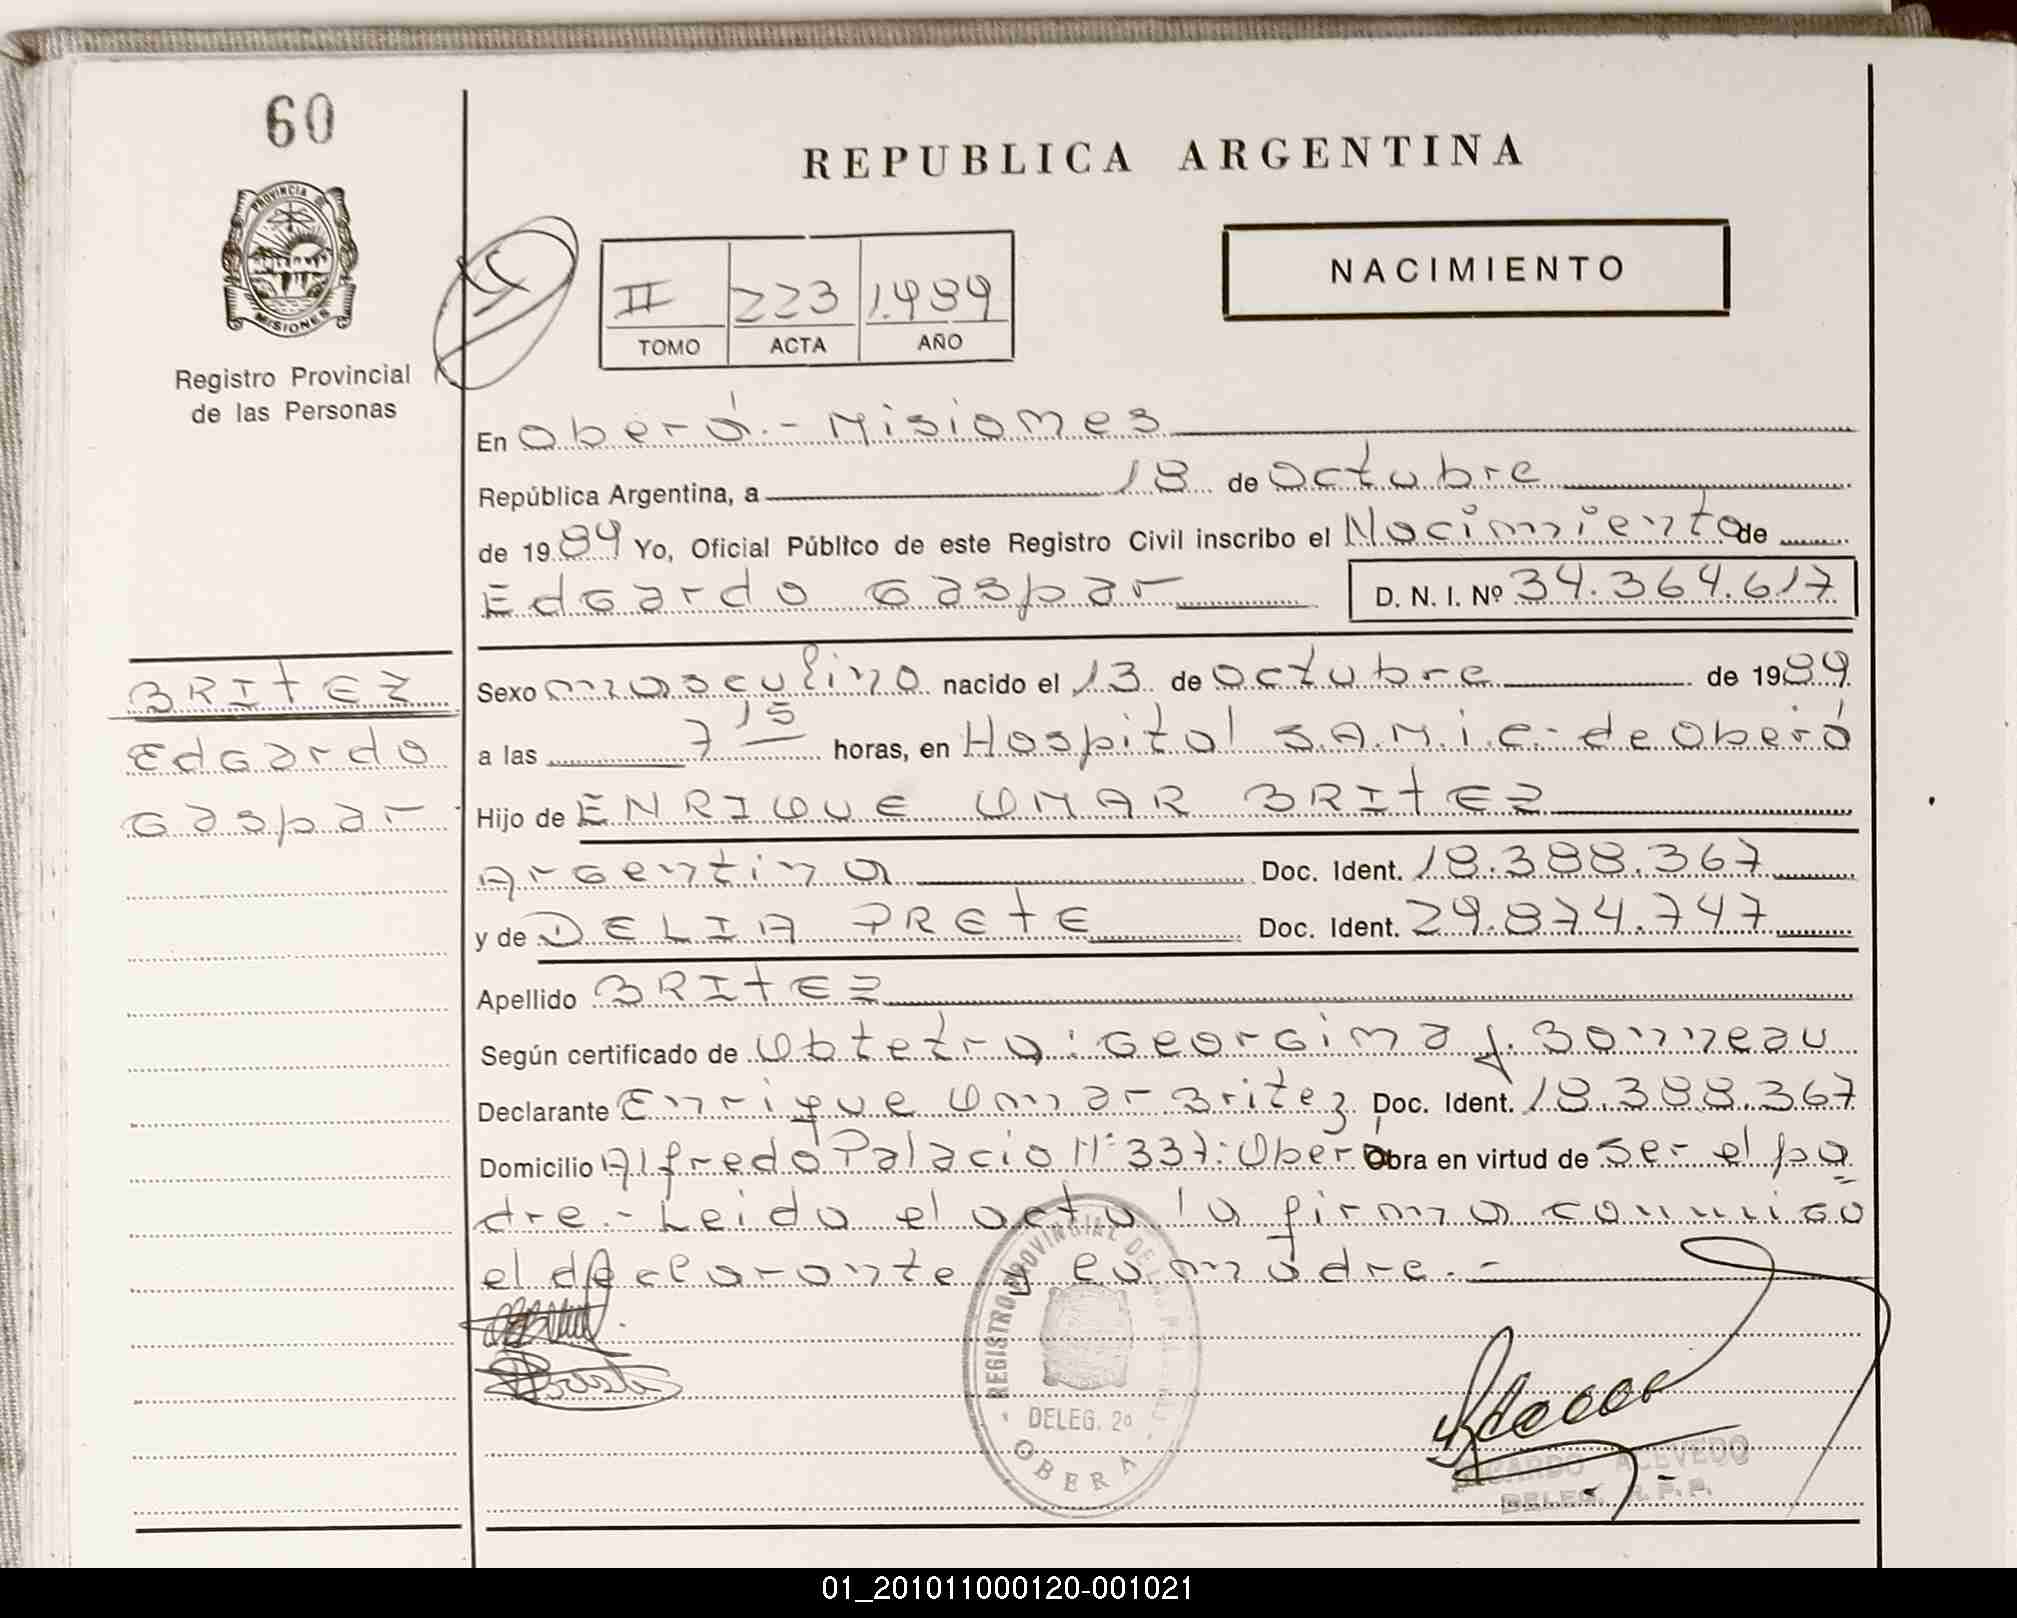 60
PROVINCIA
MISIONES
Registro Provincial
de las Personas
REPUBLICA ARGENTINA
NACIMIENTO
II 223 1.989
TOMO ACTA AÑO
En Oberá.- Misiones
República Argentina, a 18 de Octubre
de 1989 Yo, Oficial Público de este Registro Civil inscribo el Nacimiento de
Edgardo Gaspar D. N. I. Nº 34.364.617
BRITEZ
Edgardo
Gaspar
Sexo masculino nacido el 13 de Octubre de 1989
a las 7 15 horas, en Hospital S.A.M.i.c.- de Oberá
Hijo de ENRIQUE OMAR BRITEZ
Argentina Doc. Ident. 18.388.367
y de DELIA PRETE Doc. Ident. 29.874.747
Apellido BRITEZ
Según certificado de Obtetra: Georgina J. Bonneau
Declarante Enrique Omar Britez Doc. Ident. 18.388.367
Domicilio Alfredo Palacio Nº 337: Oberá Obra en virtud de ser el pa
dre.- Leida el acta la firma conmigo
el declarante y la madre.-
REGISTRO PROVINCIAL DE LAS PERSONAS
DELEG. 2a
OBERA
RICARDO ACEVEDO
DELEG. R.P.P.
01_201011000120-001021